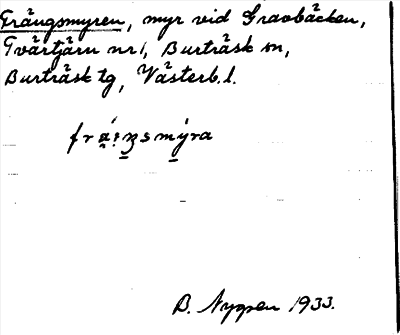 Frängsmyren, myr vid Gravbäcken,
Tvärtjärn nr 1, Burträsk sn,
Burträsk tg, Västerb. l.
B. Nygren 1933.